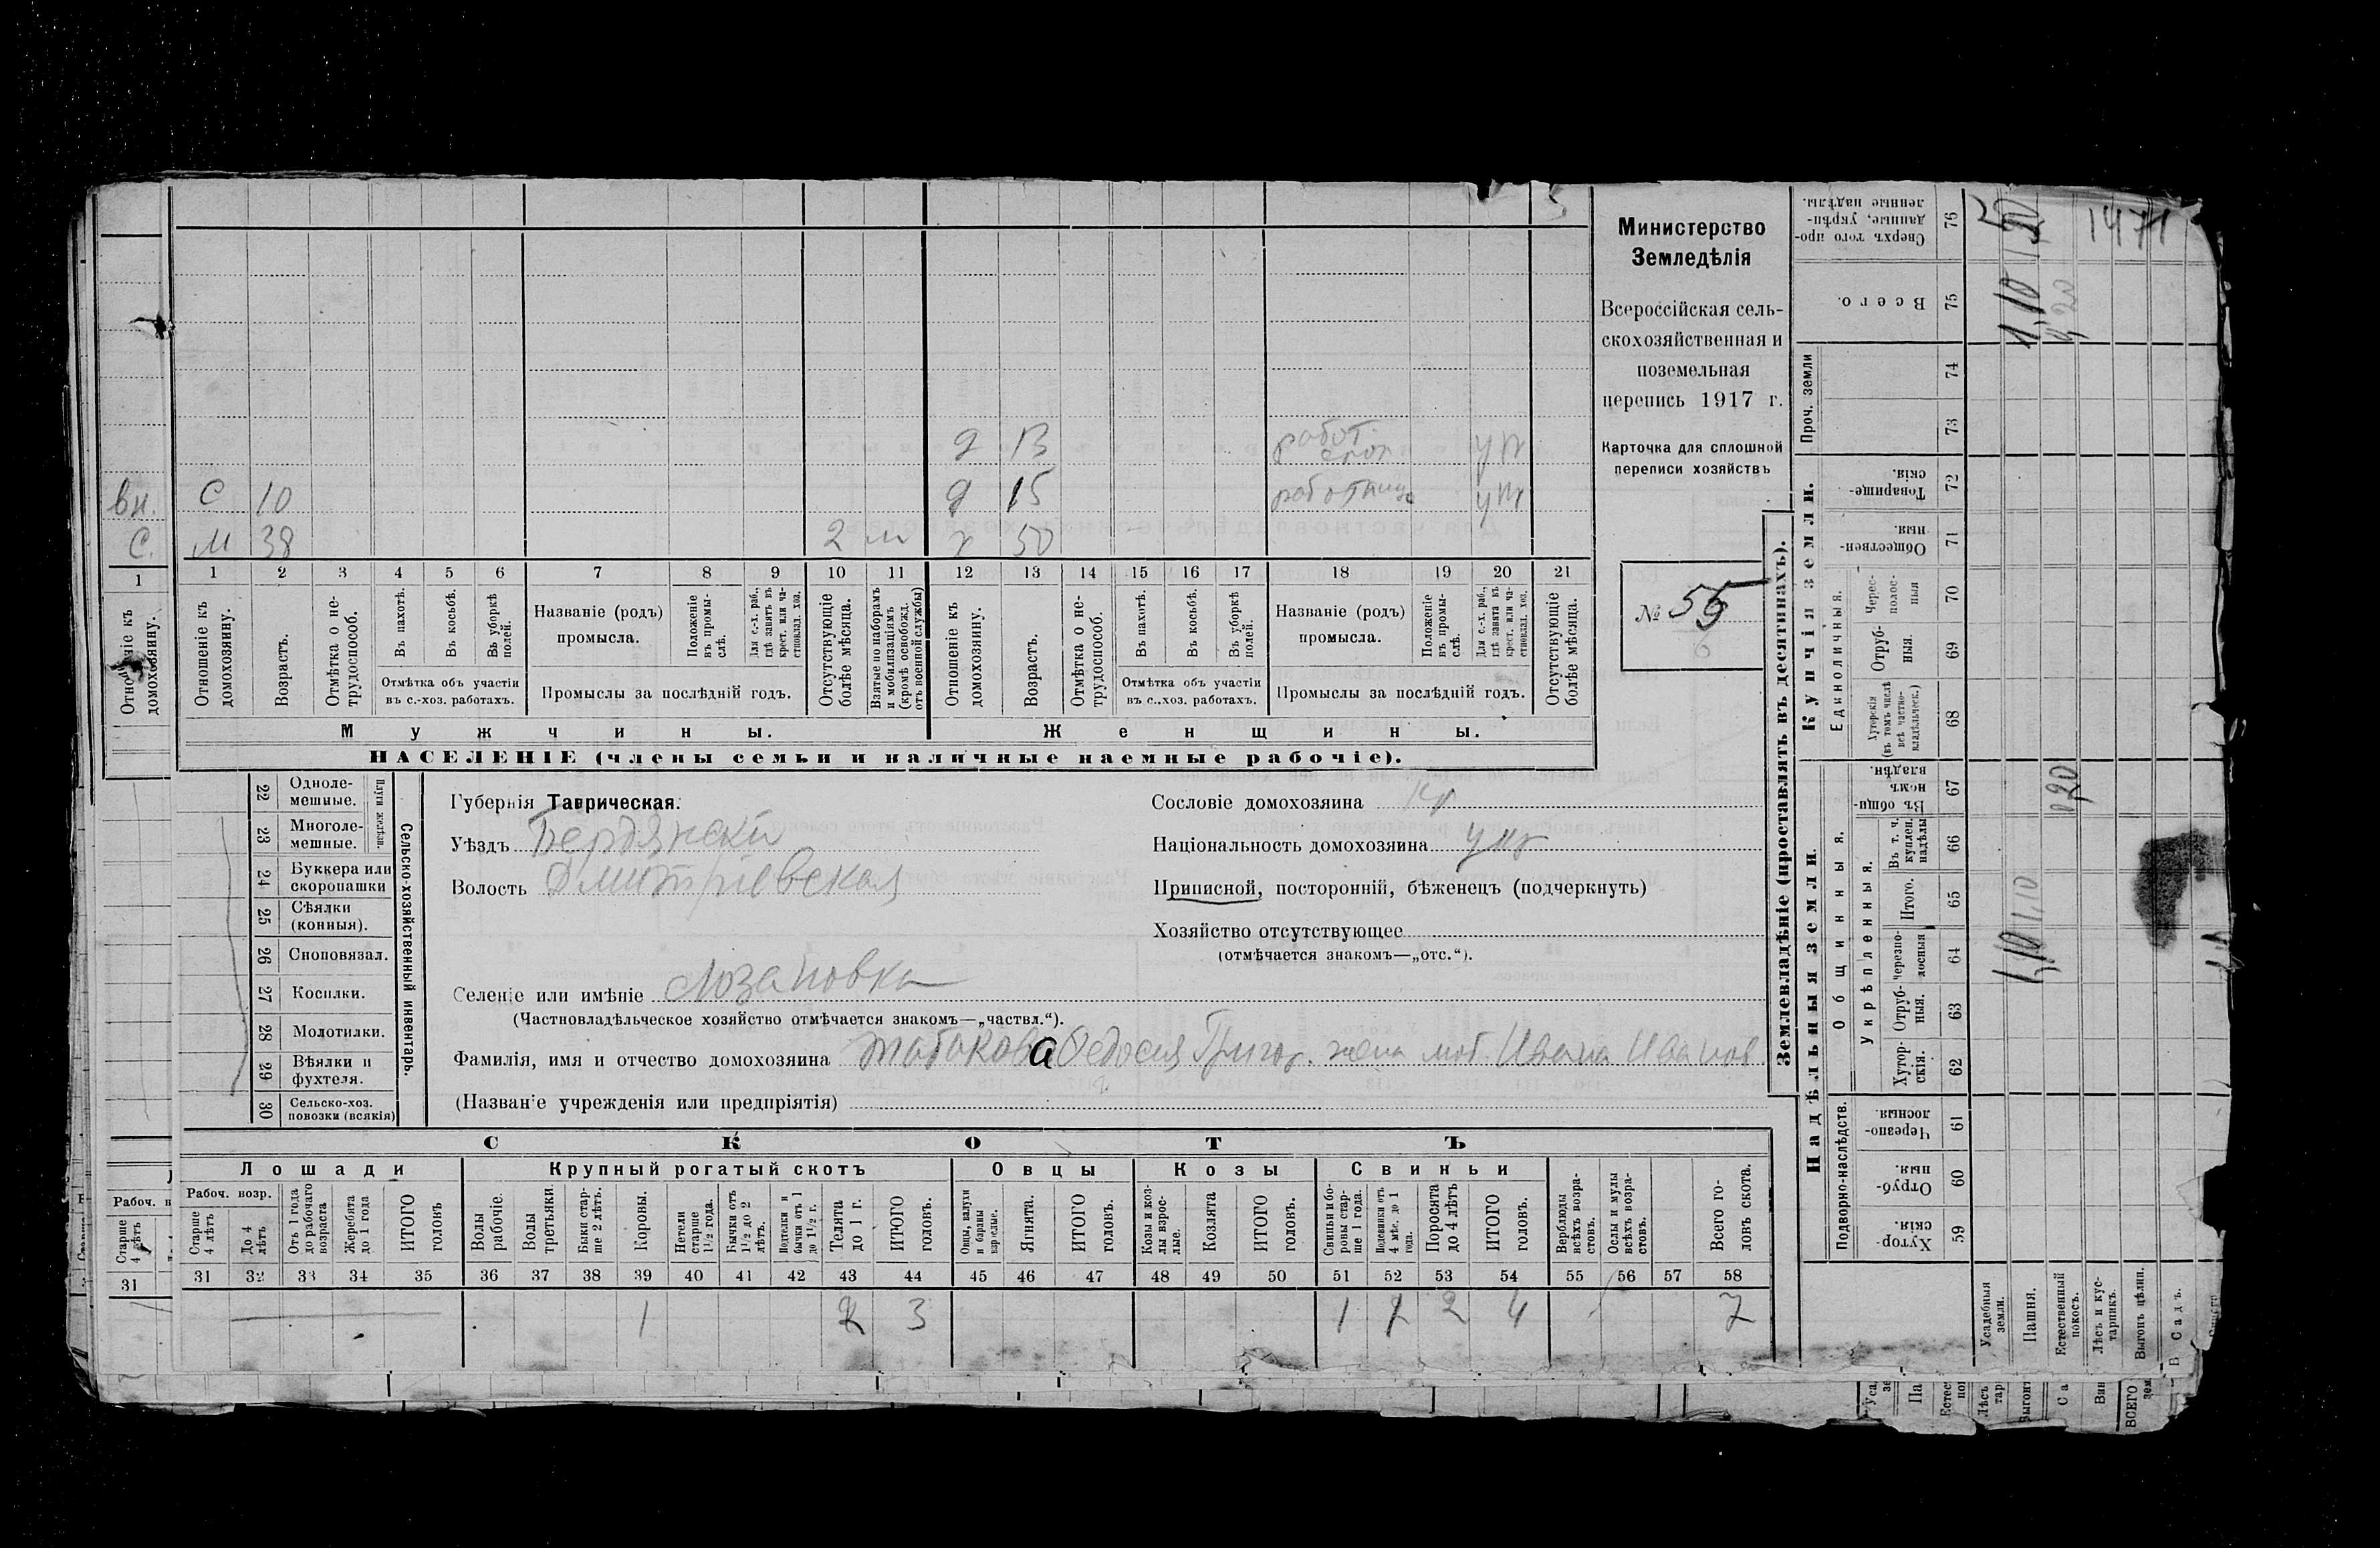 Министерство
Земледѣлія
Всероссійская сель-
скохозяйственная и
поземельная
перепись 1917 г.
Карточка для сплошной
переписи хозяйствъ
№ 55
д 13 работ. укр
вн. С 10 д 15 работница укр
С. М 38 2 м х 50
1 1 2 3 4 5 6 7 8 9 10 11 12 13 14 15 16 17 18 19 20 21
Отношеніе къ домохозяину.
Отношеніе къ домохозяину.
Возрастъ.
Отмѣтка о не-трудоспособ.
Въ пахотѣ.
Въ косьбѣ.
Въ уборкѣ полей.
Отмѣтка объ участіи
въ с.-хоз. работахъ.
Названіе (родъ)
промысла.
Положеніе въ промы-слѣ.
Для с.-х. раб., гдѣ занятъ въ крест. или ча-стновлад. хоз.
Промыслы за послѣдній годъ.
Отсутствующіе болѣе мѣсяца.
Взятые по наборамъ и мобилизаціямъ (кромѣ освобожд. отъ военной службы)
Отношеніе къ домохозяину.
Возрастъ.
Отмѣтка о не-трудоспособ.
Въ пахотѣ.
Въ косьбѣ.
Въ уборкѣ полей.
Отмѣтка объ участіи
въ с.-хоз. работахъ.
Названіе (родъ)
промысла.
Положеніе въ промы-слѣ.
Для с.-х. раб., гдѣ занята въ крест. или ча-стновлад. хоз.
Промыслы за послѣдній годъ.
Отсутствующіе болѣе мѣсяца.
Мужчины. Женщины.
НАСЕЛЕНІЕ (члены семьи и наличные наемные рабочіе).
22 Одноле-мешные.
23 Многоле-мешные.
Плуги желѣзн.
24 Буккера или скоропашки
25 Сѣялки (конныя).
26 Сноповязал.
27 Косилки.
28 Молотилки.
29 Вѣялки и фухтеля.
30 Сельско-хоз. повозки (всякія)
Сельско-хозяйственный инвентарь.
Губернія Таврическая.
Уѣздъ Бердянскій
Волость Дмитріевская
Селеніе или имѣніе Лозановка
(Частновладѣльческое хозяйство отмѣчается знакомъ—„частвл.“).
Фамилія, имя и отчество домохозяина Табакова Федосія Григор. жена моб. Ивана Иванов
(Названіе учрежденія или предпріятія)
Сословіе домохозяина кр
Національность домохозяина укр
Приписной, посторонній, бѣженецъ (подчеркнуть)
Хозяйство отсутствующее
(отмѣчается знакомъ—„отс.“).
СКОТЪ
Лошади Крупный рогатый скотъ Овцы Козы Свиньи
Рабоч. возр.
Старше 4 лѣтъ
До 4 лѣтъ
Отъ 1 года до рабочаго возраста
Жеребята до 1 года
ИТОГО головъ
Волы рабочіе.
Волы третьяки.
Быки стар-ше 2 лѣтъ.
Коровы.
Нетели старше 1 1/2 года.
Бычки отъ 1 1/2 до 2 лѣтъ.
Подтелки и бычки отъ 1 до 1 1/2 г.
Телята до 1 г.
ИТОГО головъ.
Овцы, валухи и бараны взрослые.
Ягнята.
ИТОГО головъ.
Козы и коз-лы взрос-лые.
Козлята
ИТОГО головъ.
Свиньи и бо-ровы стар-ше 1 года.
Подсвинки отъ 4 мѣс. до 1 года.
Поросята до 4 лѣтъ
ИТОГО головъ.
Верблюды всѣхъ возра-стовъ.
Ослы и мулы всѣхъ возра-стовъ.
Всего го-ловъ скота.
31 31 32 33 34 35 36 37 38 39 40 41 42 43 44 45 46 47 48 49 50 51 52 53 54 55 56 57 58
1 2 3 1 1 2 4 7
Землевладѣніе (проставлять въ десятинахъ).
Надѣльныя земли. Купчія земли.
Подворно-наслѣдств.
Общинныя.
Укрѣпленныя.
Единоличныя.
Проч. земли
Хутор-скія. 59
Отруб-ныя. 60
Черезпо-лосныя 61
Хутор-скія. 62
Отруб-ныя. 63
черезпо-лосныя 64
Итого. 65
Въ т. ч. куплен. надѣлы 66
Въ общин-номъ владѣн. 67
Хуторскія (въ томъ числѣ всѣ частно-владѣльческ.) 68
Отруб-ныя. 69
Черес-полос-ныя 70
Обществен-ныя 71
Товарище-скія. 72
73
74
Всего. 75
Сверхъ того про-данные, укрѣп-ленные надѣлы. 76
Усадебныя земли.
Пашня.
Естественный покосъ.
Лѣсъ и кус-тарникъ.
Выгонъ цѣлин.
Садъ.
1,10
1,10
1471